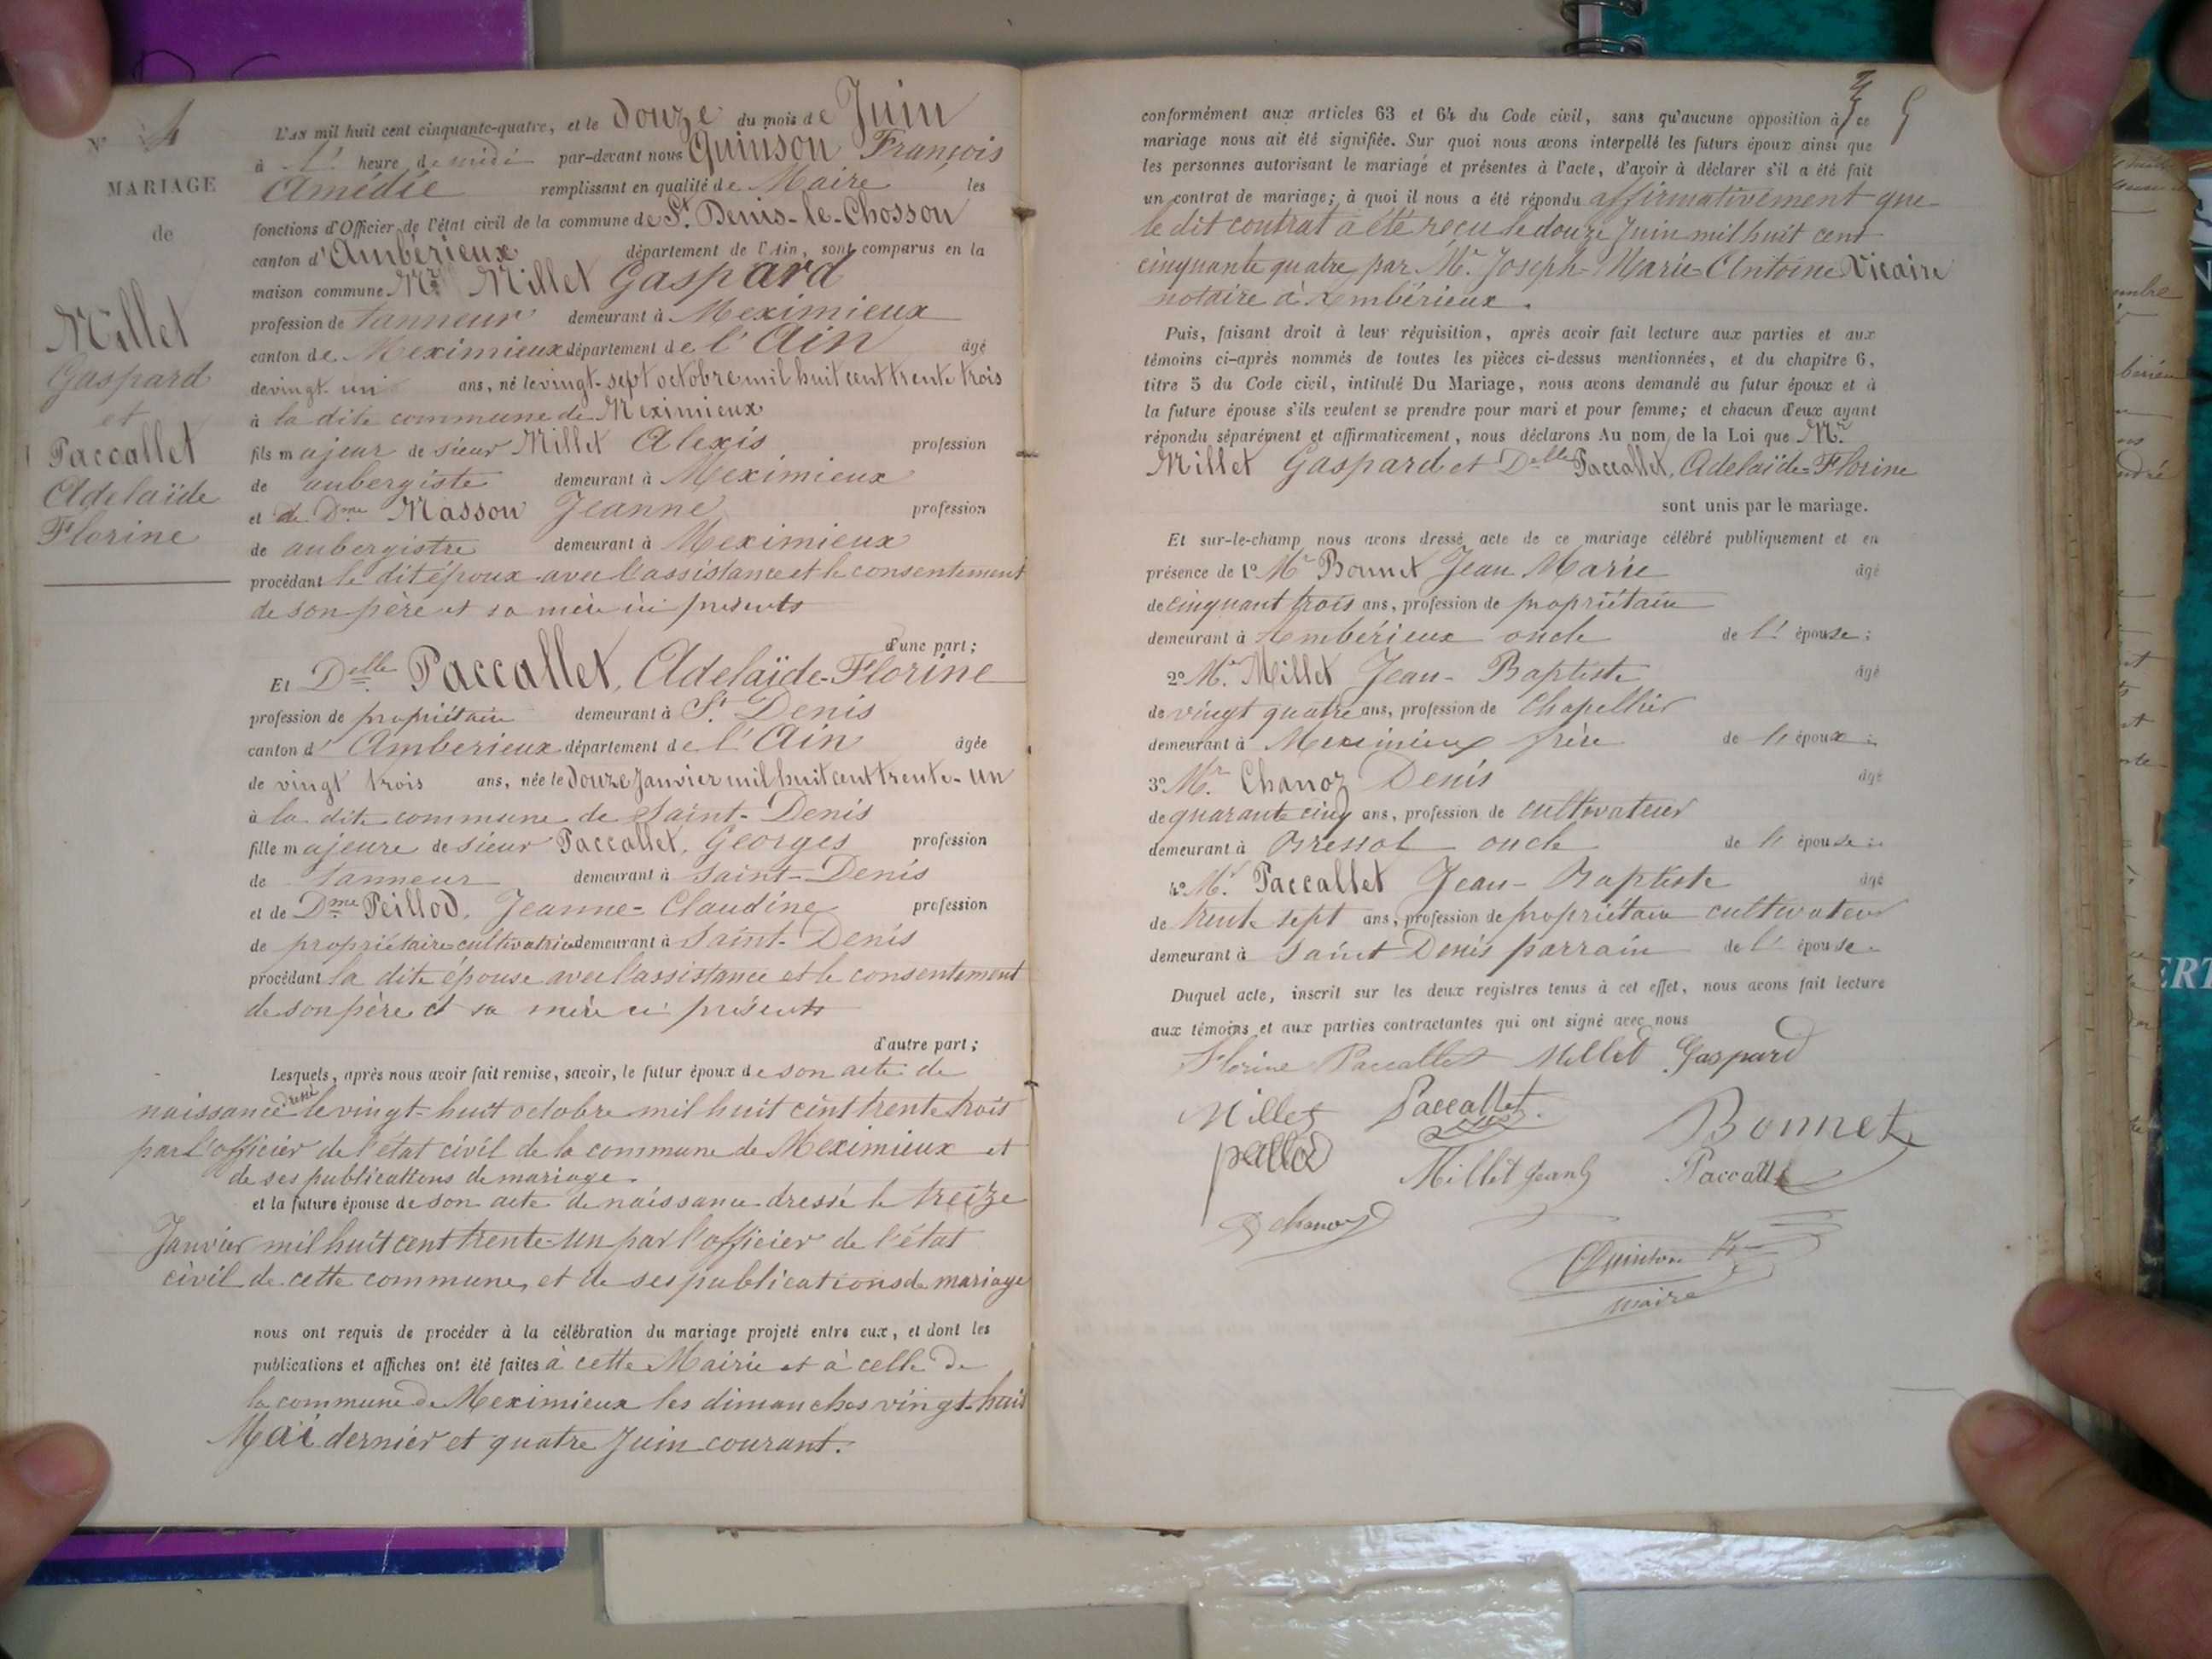 N° 4
MARIAGE
de
Millet
Gaspard
et
Paccallet
Adelaïde
Florine
L'AN mil huit cent cinquante-quatre, et le douze du mois de Juin
à l' heure de midi par-devant nous Quinson François
Amédée remplissant en qualité de Maire les
fonctions d'Officier de l'état civil de la commune de St. Denis-le-Chosson
canton d'Ambérieux département de l'Ain, sont comparus en la
maison commune Mr Millet Gaspard
profession de tanneur demeurant à Meximieux
canton de Meximieux département de l'Ain âgé
de vingt un ans, né le vingt-sept octobre mil huit cent trente trois
à la dite commune de Meximieux
fils majeur de sieur Millet Alexis profession
de aubergiste demeurant à Meximieux
et de Dme Masson Jeanne profession
de aubergistre demeurant à Meximieux
procédant le dit époux avec l'assistance et le consentement
de son père et sa mère ici présents
d'une part;
Et Delle Paccallet, Adelaïde-Florine
profession de propriétaire demeurant à St. Denis
canton d'Amberieux département de l'Ain âgée
de vingt trois ans, née le douze Janvier mil huit cent trente-un
à la dite commune de Saint-Denis
fille majeure de sieur Paccallet, Georges profession
de tanneur demeurant à Saint-Denis
et de Dme Peillod, Jeanne-Claudine profession
de propriétaire cultivatrice demeurant à Saint-Denis
procédant la dite épouse avec l'assistance et le consentement
de son père et sa mère ci présents
d'autre part;
Lesquels, après nous avoir fait remise, savoir, le futur époux de son acte de
naissance dressé le vingt-huit octobre mil huit cent trente trois
par l'officier de l'état civil de la commune de Meximieux et
de ses publications de mariage.
et la future épouse de son acte de naissance dressé le treize
Janvier mil huit cent trente-un par l'officier de l'état
civil de cette commune, et de ses publications de mariage
nous ont requis de procéder à la célébration du mariage projeté entre eux, et dont les
publications et affiches ont été faites à cette Mairie et à celle de
la commune de Meximieux les dimanches vingt-huit
Mai dernier et quatre Juin courant.
5
conformément aux articles 63 et 64 du Code civil, sans qu'aucune opposition à ce
mariage nous ait été signifiée. Sur quoi nous avons interpellé les futurs époux ainsi que
les personnes autorisant le mariage et présentes à l'acte, d'avoir à déclarer s'il a été fait
un contrat de mariage; à quoi il nous a été répondu affirmativement que
le dit contrat a été reçu le douze Juin mil huit cent
cinquante quatre par Mr. Joseph-Marie-Antoine Vicaire
notaire à Ambérieux.
Puis, faisant droit à leur réquisition, après avoir fait lecture aux parties et aux
témoins ci-après nommés de toutes les pièces ci-dessus mentionnées, et du chapitre 6,
titre 5 du Code civil, intitulé Du Mariage, nous avons demandé au futur époux et à
la future épouse s'ils veulent se prendre pour mari et pour femme; et chacun d'eux ayant
répondu séparément et affirmativement, nous déclarons Au nom de la Loi que Mr.
Millet Gaspard et Delle Paccallet, Adelaïde-Florine
sont unis par le mariage.
Et sur-le-champ nous avons dressé acte de ce mariage célébré publiquement et en
présence de 1° Mr Bonnet Jean Marie âgé
de cinquant trois ans, profession de propriétaire
demeurant à Ambérieux oncle de l' épouse;
2° Mr. Millet Jean-Baptiste âgé
de vingt quatre ans, profession de Chapellier
demeurant à Meximieux frère de l' époux;
3° Mr. Chanoz Denis âgé
de quarante cinq ans, profession de cultivateur
demeurant à Bressol oncle de l' épouse;
4° Mr. Paccallet Jean-Baptiste âgé
de trente sept ans, profession de propriétaire cultivateur
demeurant à Saint Denis parrain de l' épouse.
Duquel acte, inscrit sur les deux registres tenus à cet effet, nous avons fait lecture
aux témoins et aux parties contractantes qui ont signé avec nous
Florine Paccallet Millet Gaspard
Millet Paccallet. Bonnet
peillod Millet Jean B Paccallet
chanoz
Quinson
maire